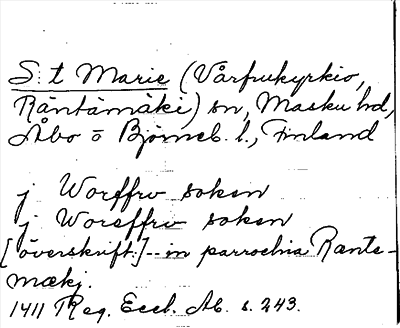 S:t Marie (Vårfrukyrkio,
Räntämäki) sn, Masku hd,
Åbo o Björneb. l., Finland
j Worffrv soken
j Woreffrv soken
[överskrift:]-- in parrochia Rante-
mækj.
1411 Reg. Eccl. Ab. s. 243.